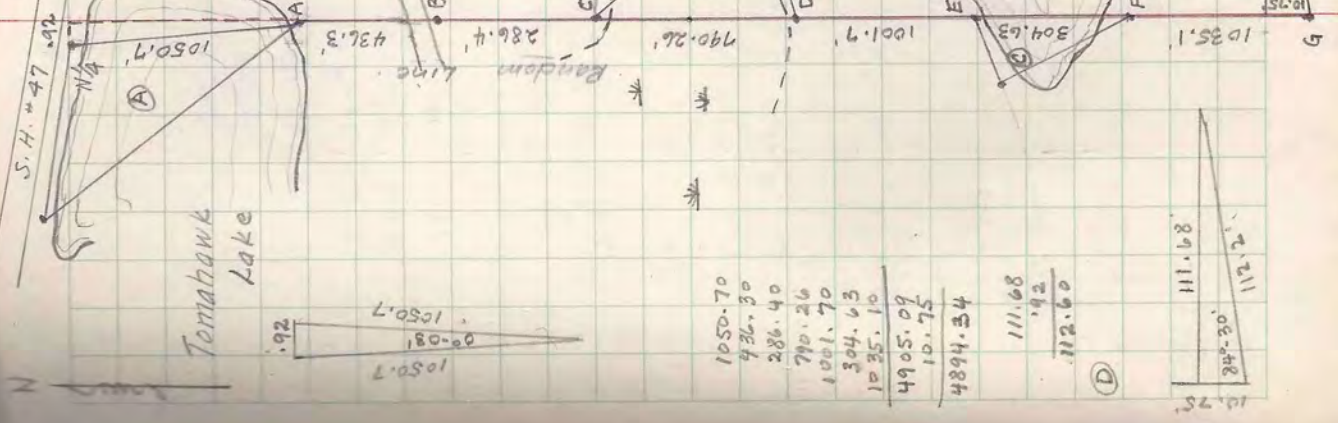 S. H. #47
.92
N 1/4
1050.7'
A
A
436.3'
B
286.4'
C
790.26'
D
1001.7'
E
304.63
C
F
1035.1'
10.75'
G
Random Line
Tomahawk
Lake
N
.92
1050.7
0°-03'
1050.7
1050.70
436.30
286.40
790.26
1001.70
304.63
1035.10
4905.09
10.75
4894.34
111.68
.92
112.60
D
111.68'
112.2'
84°-30'
10.75'